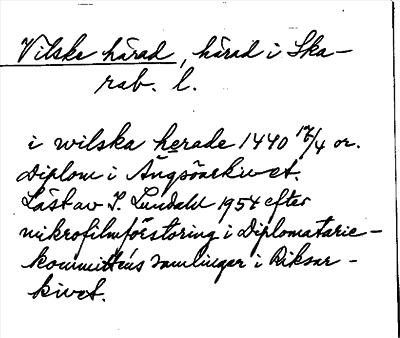 Vilske härad, härad i Ska-
rab. l.
i wilska herade 1440 12/4 or.
Diplom i Ängsöarkivet.
Läst av I. Lundahl 1954 efter
mikrofilmförstoring i Diplomatarie-
kommitténs samlingar i Riksar-
kivet.